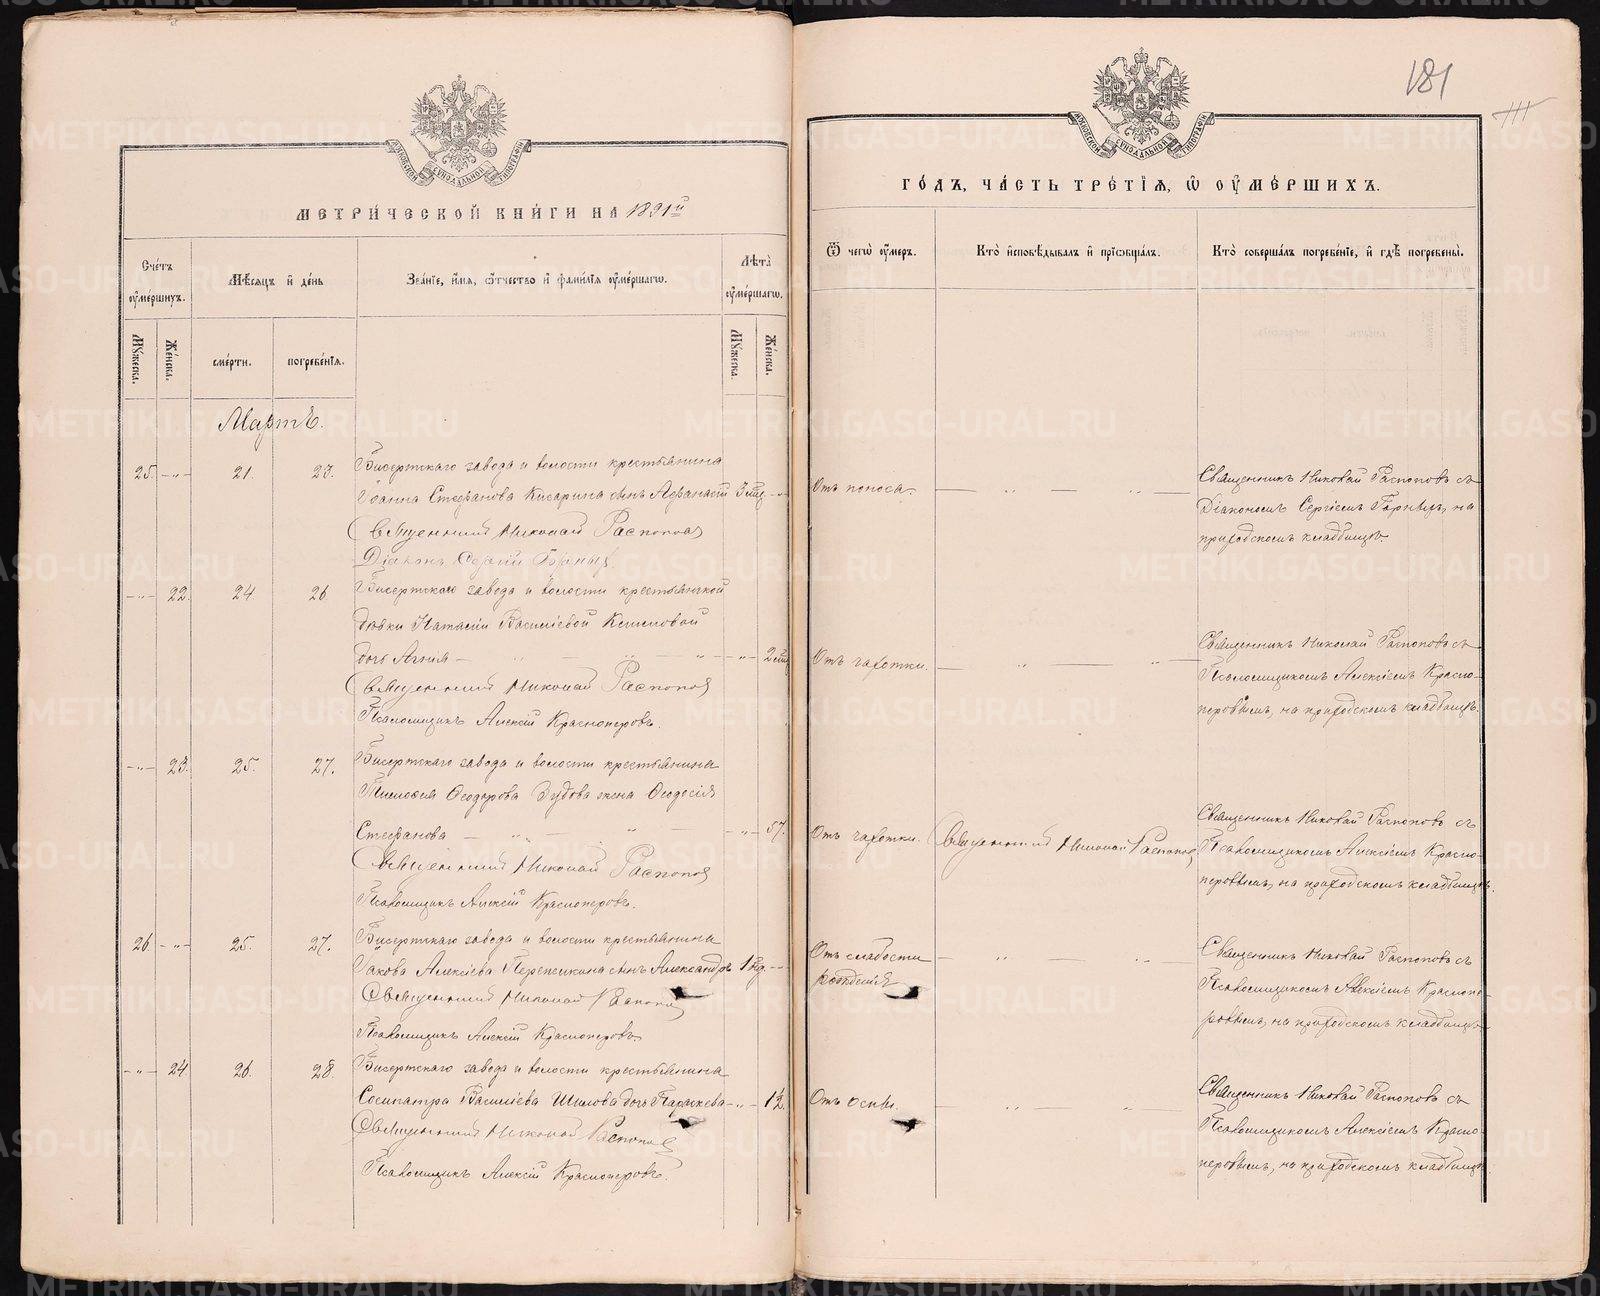 181
МЕТРИ́ЧЕСКОЙ КНИ́ГИ НА 1891й
ГО́ДЪ, ЧА́СТЬ ТРЕ́ТІЯ, Ѿ ОУМЕ́РШИХЪ.
Сче́тъ оуме́ршихъ.
Мѣ́сяцъ и де́нь
Зва́ніе, и́мя, о́тчество и фами́лія оуме́ршагѡ.
Лѣта̀ оуме́ршагѡ.
Мꙋ́жеска.
Же́нска.
сме́рти.
погребе́нія.
Мꙋ́жеска.
Же́нска.
Ѿ чегѡ̀ оу́меръ.
Кто̀ исповѣ́дывалъ и пріѡбща́лъ.
Кто̀ соверша́лъ погребе́ніе, и гдѣ̀ погребены̀.
Мартъ.
25. —"— 21. 23.
Бисертскаго завода и волости крестьянина
Іоанна Стефанова Кисарина сынъ Афанасій 3 мѣс. —"
Священникъ Николай Распоповъ
Діаконъ Сергій
Отъ поноса.
Священникъ Николай Распоповъ съ
Діакономъ Сергіемъ на
приходскомъ кладбищѣ.
—"— 22. 24. 26
Бисертского завода и волости крестьянской
дѣвки Наталіи Василіевой
дочь Агнія — " — " — " — 2 мѣс
Священникъ Николай Распоповъ
Псаломщикъ Алексій Красноперовъ.
Отъ чахотки.
Священникъ Николай Распоповъ съ
Псаломщикомъ Алексіемъ Красно-
перовымъ, на приходскомъ кладбищѣ.
—"— 23. 25. 27.
Бисертскаго завода и волости крестьянина
Ѳеодорова Зудова жена Ѳеодосія
Стефанова — " — " — " — 57.
Священникъ Николай Распоповъ
Псаломщикъ Алексій Красноперовъ.
Отъ чахотки.
Священникъ Николай Распоповъ
Священникъ Николай Распоповъ съ
Псаломщикомъ Алексіемъ Красно-
перовымъ, на приходскомъ кладбищѣ.
26. —"— 25. 27.
Бисертскаго завода и волости крестьянина
Іакова Алексіева Перепечкина сынъ Александръ 1 нед. —"
Священникъ Николай Распоповъ
Псаломщикъ Алексій Красноперовъ
Отъ слабости
рожденія
Священникъ Николай Распоповъ съ
Псаломщикомъ Алексіемъ Краснопе-
ровымъ, на приходскомъ кладбищѣ
—"— 24. 26. 28.
Бисертскаго завода и волости крестьянина
Сосипатра Василіева Шилова дочь Параскева — " — 1½
Священникъ Николай Распоповъ
Псаломщикъ Алексій Красноперовъ.
Отъ оспы.
Священникъ Николай Распоповъ съ
Псаломщикомъ Алексіемъ Красно-
перовымъ, на приходскомъ кладбищѣ
METRIKI.GASO-URAL.RU